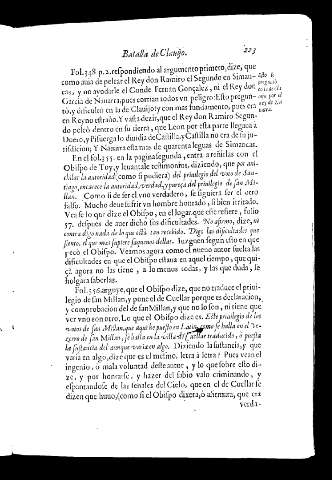 Batalla de Clauijo. 223
Fol. 348 p. 2. respondiendo al argumento primero, dize, que
como auia de pelear el Rey don Ramiro el Segundo en Siman-
cas, y no ayudarle el Conde Fernan Gonçalez, ni el Rey don
Garcia de Nauarra, pues corrian todos vn peligro: Esto pregun-
to, y dificulten en la de Clauijo, y con mas fundamento, pues era
en Reyno estraño. Y vasta dezir, que el Rey don Ramiro Segun-
do peleò dentro en su tierra, que Leon por esta parte llegaua à
Duero, y Pisuerga lo diuidia de Castilla, y Castilla no era de su
y Nauarra està mas de quarenta leguas de Simancas.
En el fol. 355. en la pagina segunda, entra a reñirlas con el
Obispo de Tuy, y leuantale testimonios, diziendo, que por
dilatar la autoridad, (como si pudiera) del priuilegio del voto de San-
tiago, encarece la autoridad, verdad, y pureça del priuilegio de san Mi-
llan. Como si de ser el vno verdadero, se siguiera ser el otro
falso. Mucho deue sufrir vn hombre honrado, si bien irritado.
Vease lo que dize el Obispo, en el lugar que este refiere, folio
57. despues de auer dicho sus dificultades. No diremos aora, ni
contra dijo nada de lo que està tan recibido. Digo las dificultades que
siento, el que mas supiere saquenos dellas. Iuzguen segun esto en que
pecò el Obispo. Veamos agora como el nueuo autor suelta las
dificultades en que el Obispo estaua en aquel tiempo, que qui-
çà agora no las tiene, a lo menos todas, y las que duda, se
holgara saberlas.
Fol. 356. arguye, que el Obispo dize, que no traduce el priui-
legio de san Millan, y pone el de Cuellar porque es declaracion,
y comprobacion del de san Millan, y que no lo son, ni tiene que
ver vno con otro. Lo que el Obispo dize es. Este priuilegio de los
votos de San Millan, que aqui he puesto en Latin, como se halla en el Be-
zerro de san Millan, se halla en la villa de Cuellar traducido, o puesta
la sustancia del aunque varia en algo. Diziendo la sustancia, y que
varia en algo, dize que es el mesmo, letra a letra? Pues vean el
ingenio, o mala voluntad deste autor, y lo que sobre esto di-
ze, y por honrarse, y hazer del sabio valo criminando, y
espantandose de las señales del Cielo, que en el de Cuellar se
dizen que huuo, (como si el Obispo dixera, ò afirmara, que era
verda-